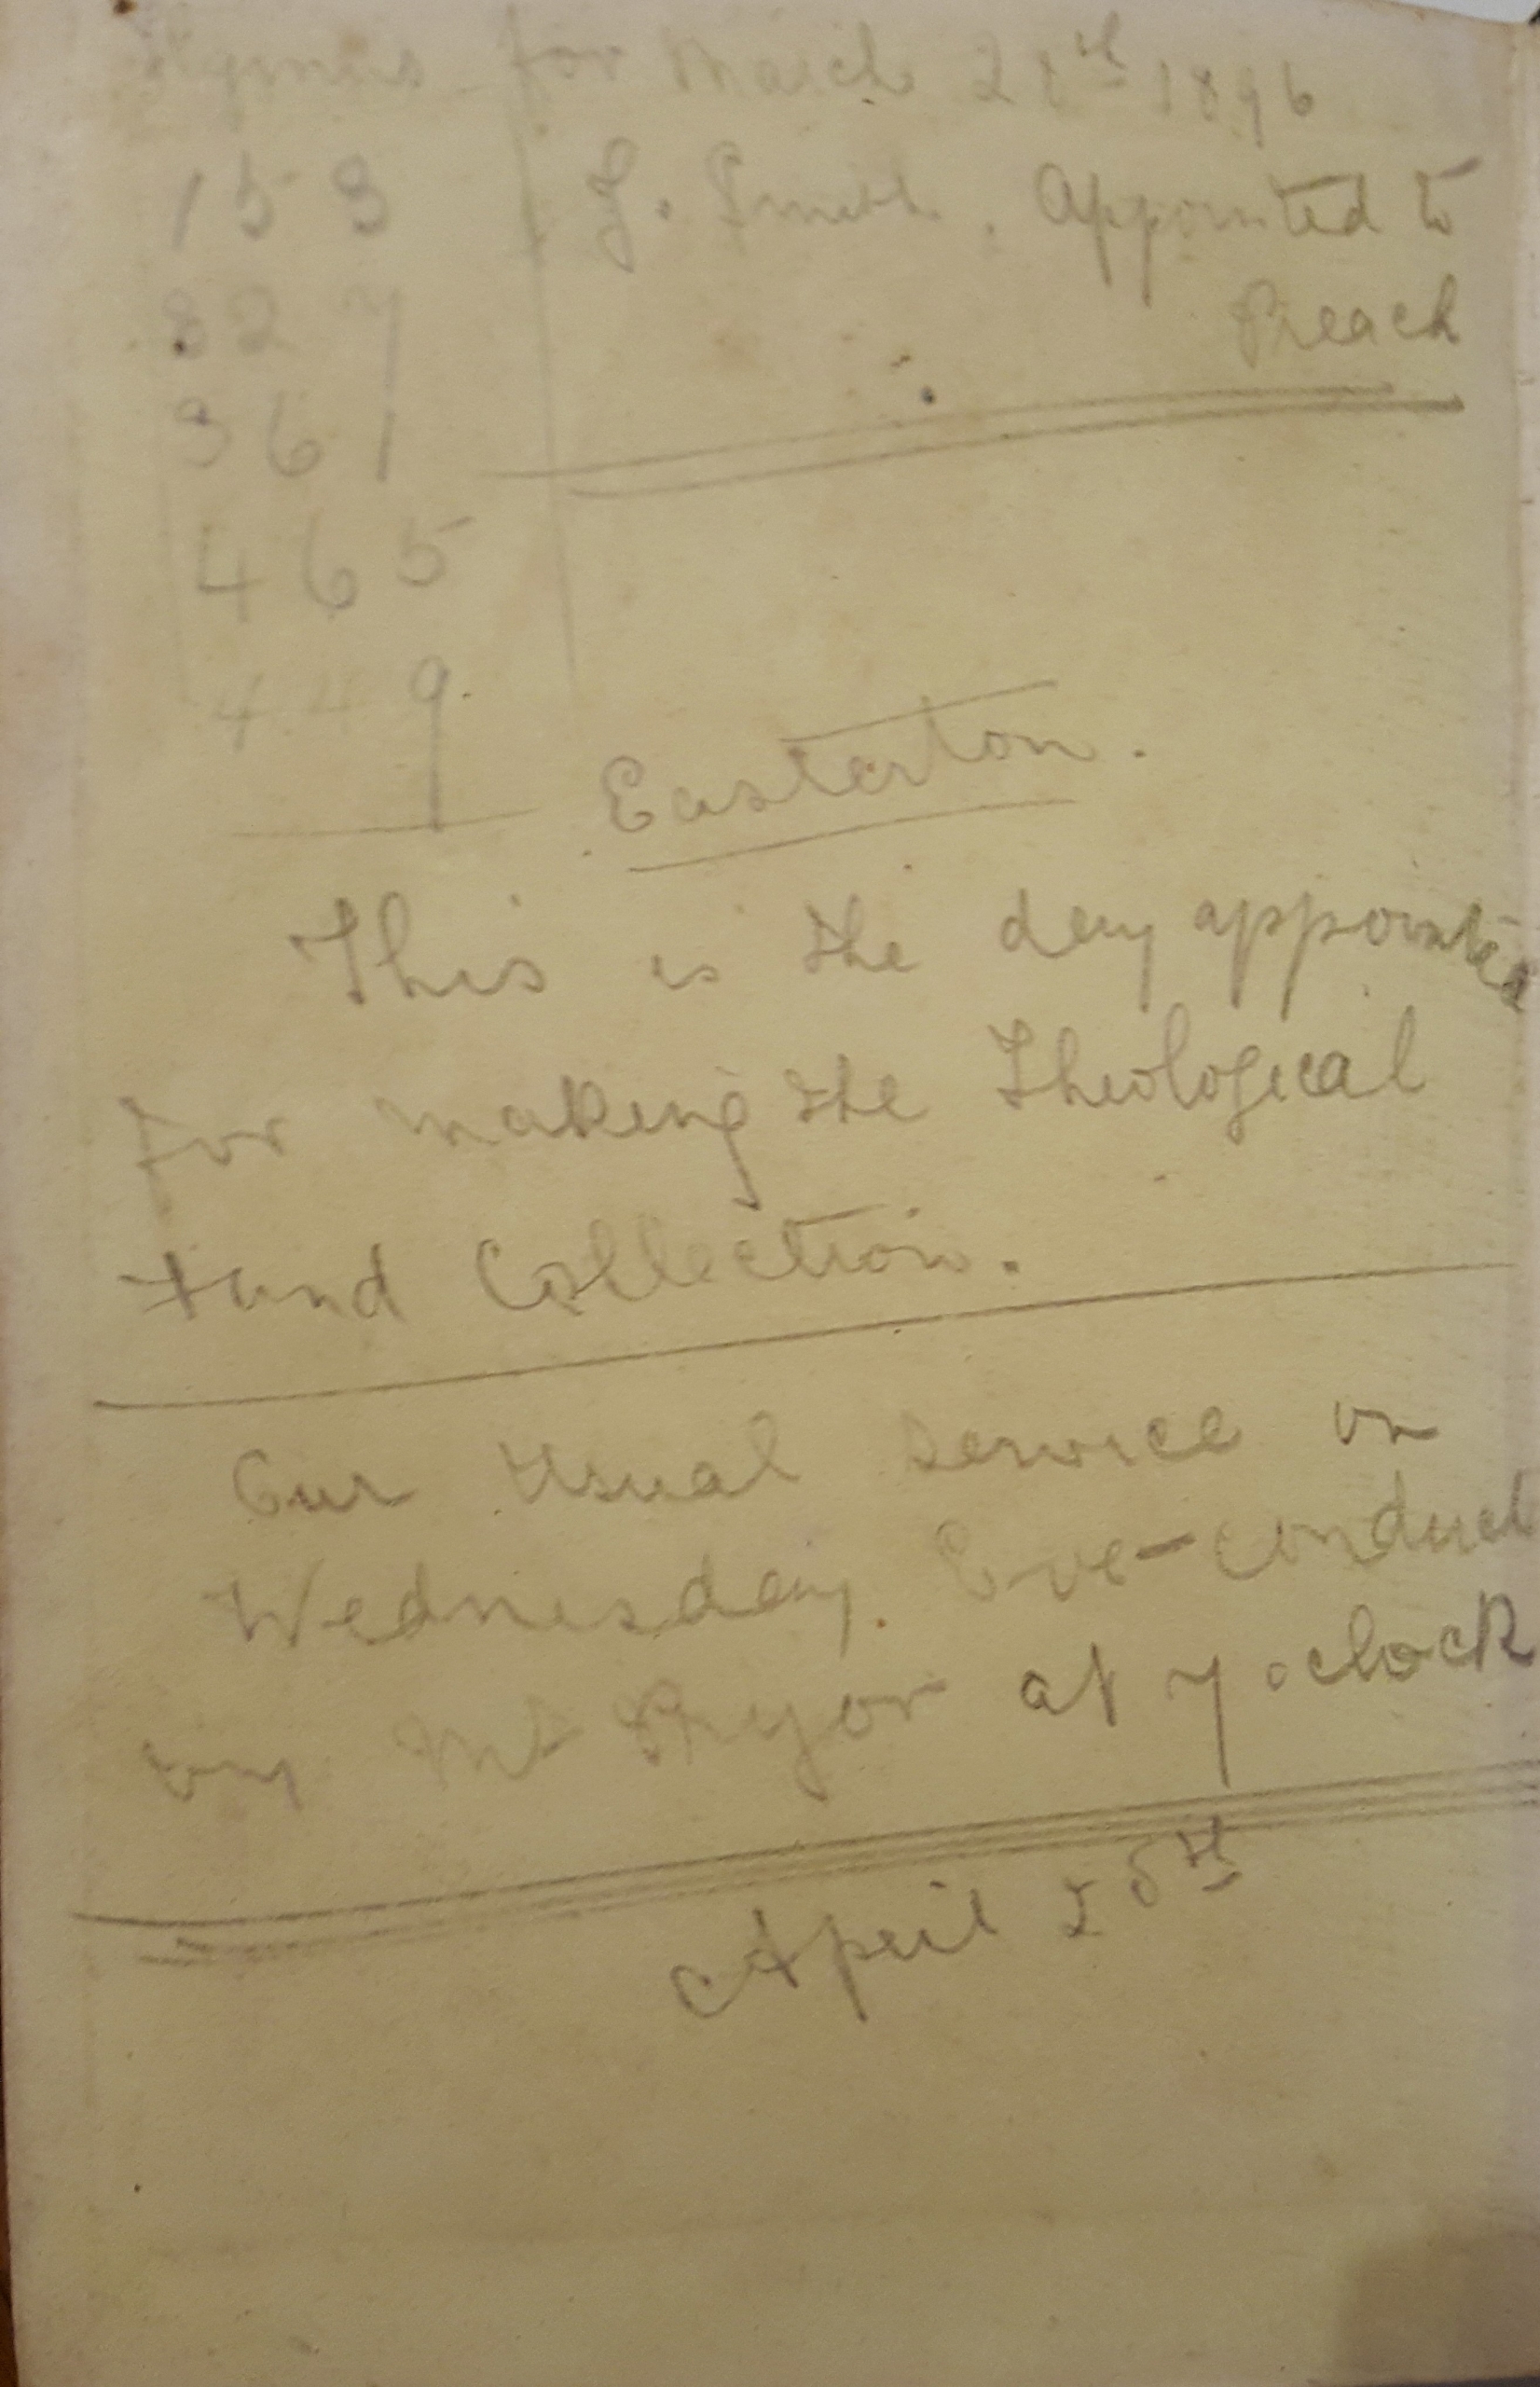 Hymns for March 28th 1896
153 J. Smith. Appointed to
Preach
827
361
465
449.
Easterton.
This is the day appointed
for making the Theological
Fund Collection.
Our Usual service on
Wednesday. Eve- conduct
by Mr Pryor at 7 oclock
April 25th